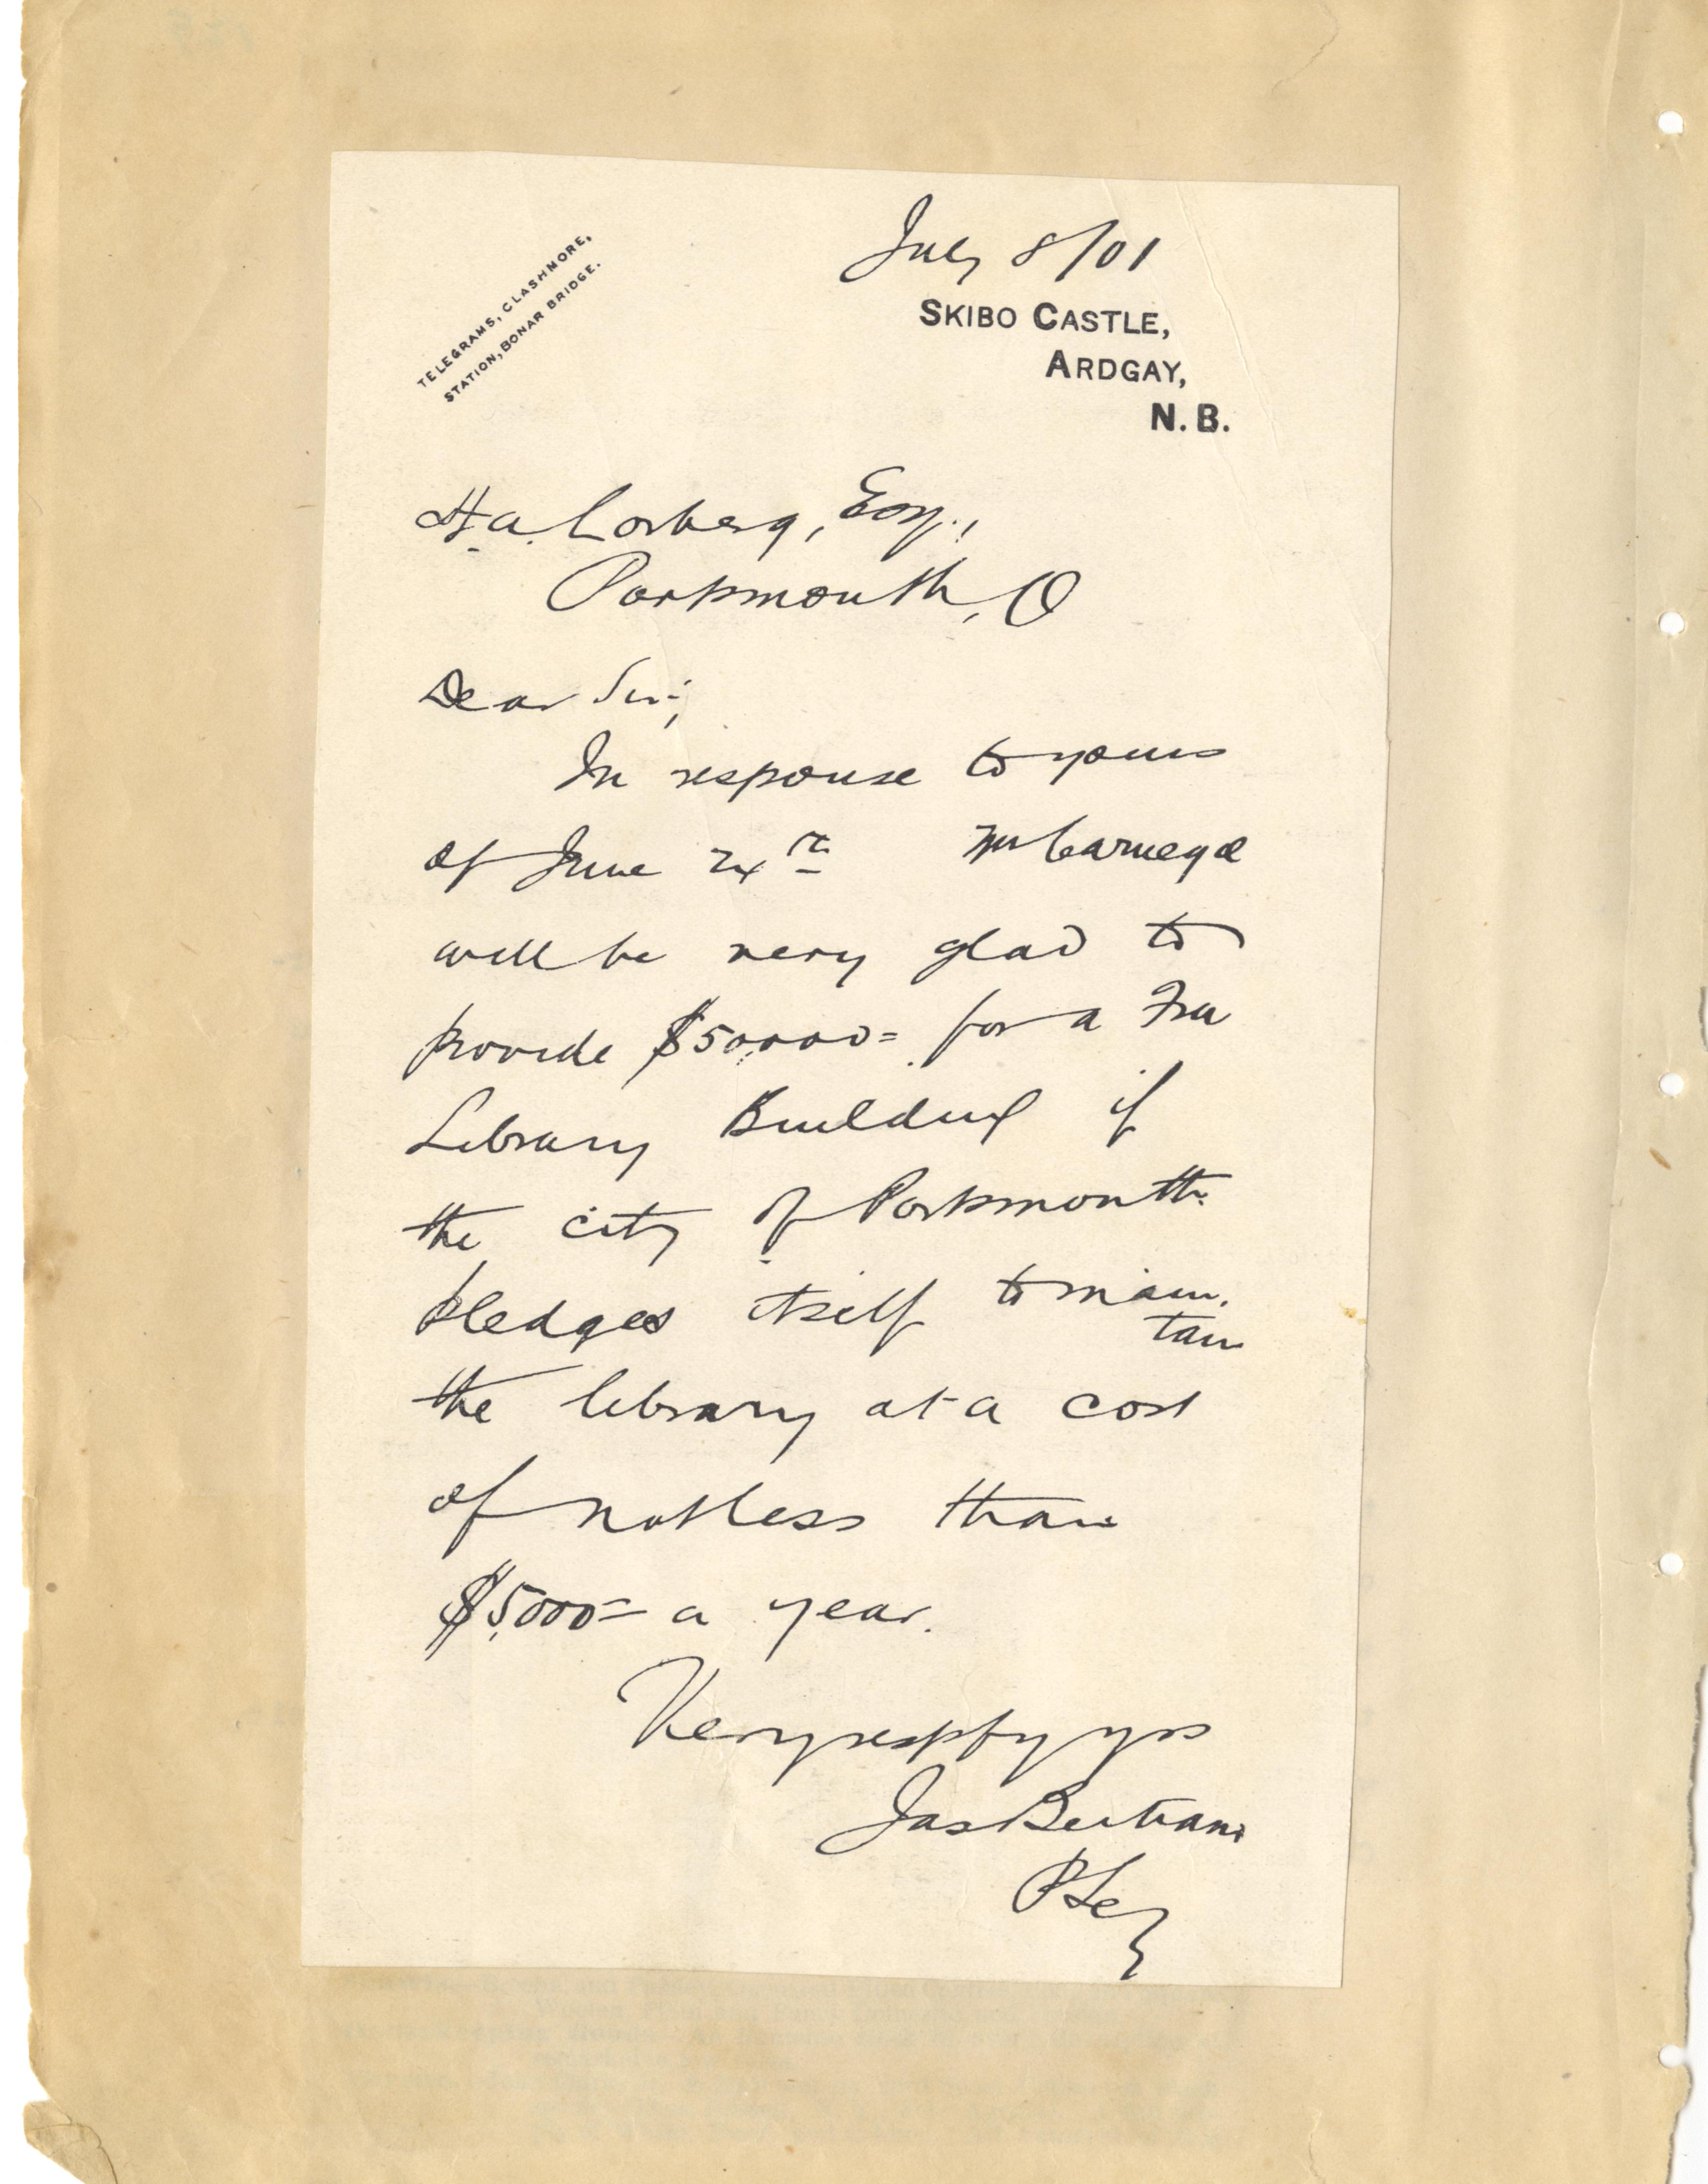 July 8/01
TELEGRAMS, CLASHMORE,
STATION, BONAR BRIDGE.
SKIBO CASTLE,
ARDGAY,
N. B.
H. A. Lorberg, Esq.,
Portsmouth, O
Dear Sir;
In response to yours
of June 24th Mr Carnegie
will be very glad to
provide $50,000= for a Free
Library Building if
the city of Portsmouth
pledges itself to main-
tain
the library at a cost
of not less than
$5,000= a year.
Very respfy yrs
Jas Bertram
P Secy